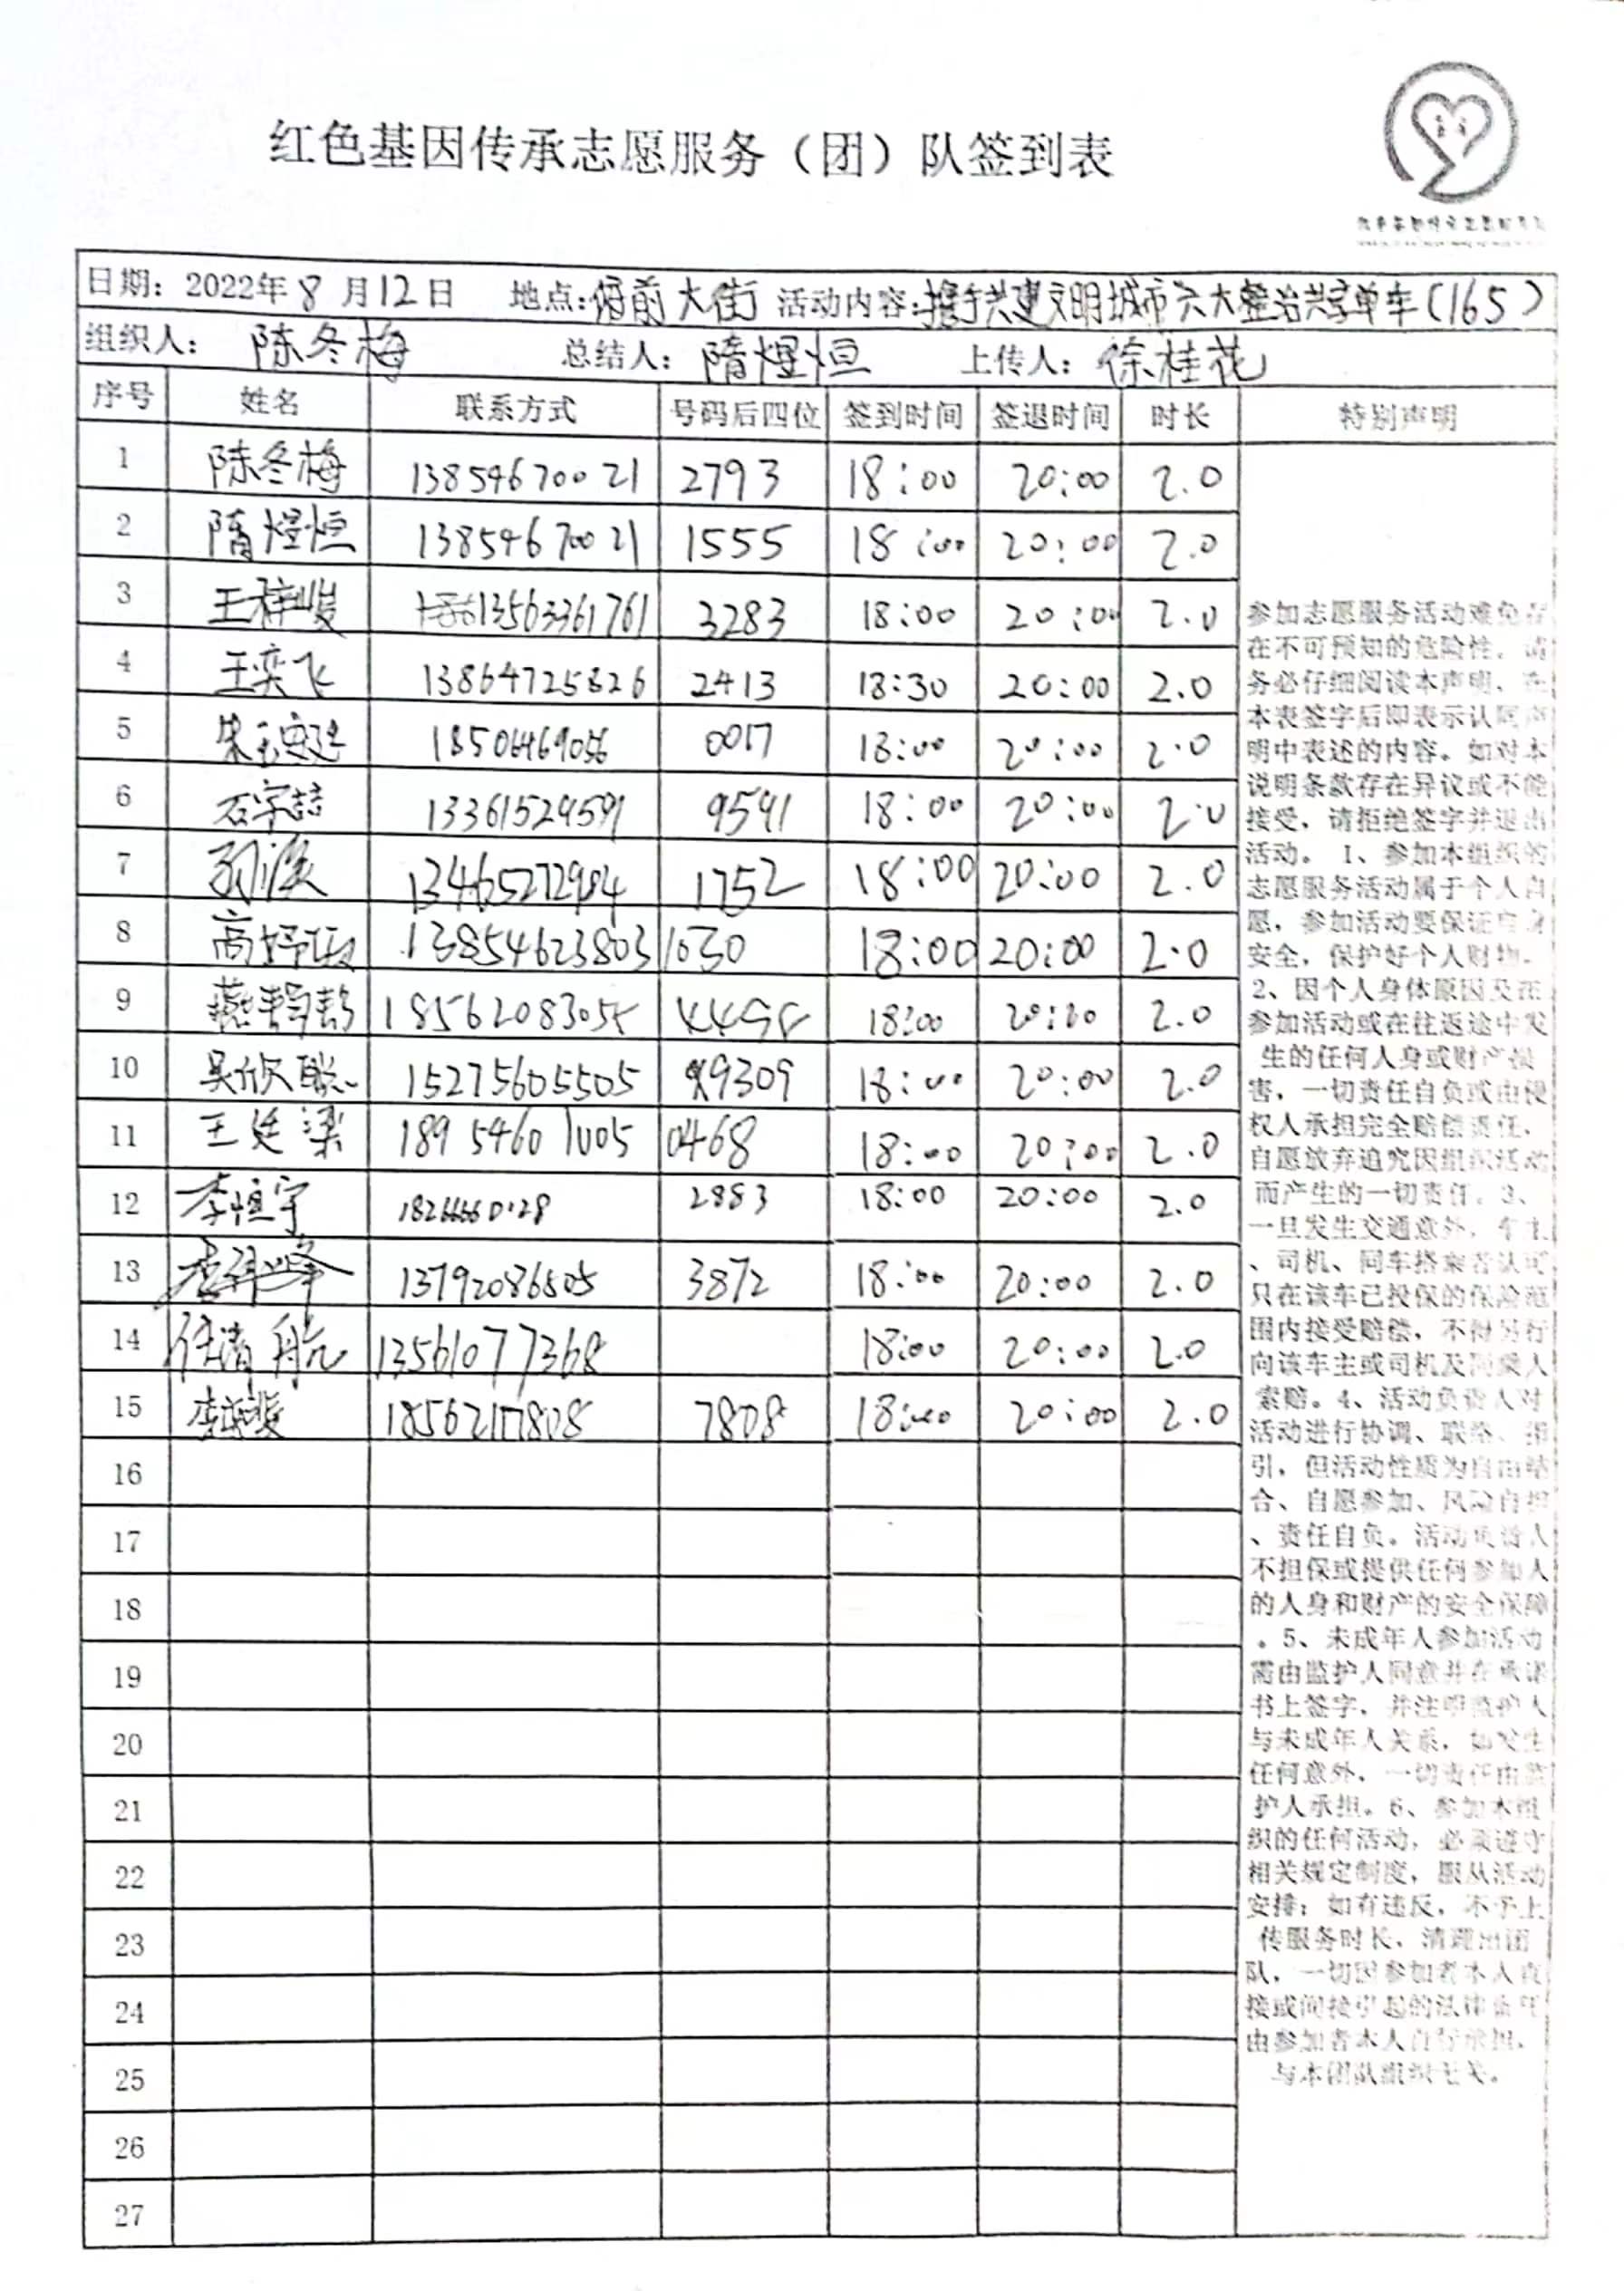 红色基因传承志愿服务（团）队签到表
日期：2022年8月12日 地点：府前大街 活动内容：携手共建文明城市 六大整治共享单车（165）
组织人：陈冬梅 总结人：隋煜恒 上传人：徐桂花
序号 姓名 联系方式 号码后四位 签到时间 签退时间 时长 特别声明
1 陈冬梅 13854670021 2793 18:00 20:00 2.0
2 隋煜恒 13854670021 1555 18:00 20:00 2.0
3 王梓峻 13563361761 3283 18:00 20:00 2.0
4 王奕飞 13864725826 2413 18:30 20:00 2.0
5 18506469056 0017 18:00 20:00 2.0
6 石宇喆 13361529591 9591 18:00 20:00 2.0
7 13465272984 1752 18:00 20:00 2.0
8 13854623803 1630 18:00 20:00 2.0
9 18:00 20:00 2.0
10 15275605505 9309 18:00 20:00 2.0
11 王廷梁 18954601005 0468 18:00 20:00 2.0
12 李恒宇 2883 18:00 20:00 2.0
13 13792086505 3872 18:00 20:00 2.0
14 任清航 13561077368 18:00 20:00 2.0
15 18562117808 7808 18:00 20:00 2.0
16
17
18
19
20
21
22
23
24
25
26
27
参加志愿服务活动难免存
在不可预知的危险性，请
务必仔细阅读本声明，在
本表签字后即表示认同声
明中表述的内容。如对本
说明条款存在异议或不能
接受，请拒绝签字并退出
活动。1、参加本组织的
志愿服务活动属于个人自
愿，参加活动要保证自身
安全，保护好个人财物。
2、因个人身体原因及在
参加活动或在往返途中发
生的任何人身或财产损
害，一切责任自负或由侵
权人承担完全赔偿责任，
自愿放弃追究因组织活动
而产生的一切责任。3、
一旦发生交通意外，车主
、司机、同车搭乘者认可
只在该车已投保的保险范
围内接受赔偿，不得另行
向该车主或司机及同乘人
索赔。4、活动负责人对
活动进行协调、联络、指
引，但活动性质为自由结
合、自愿参加、风险自担
、责任自负。活动负责人
不担保或提供任何参加人
的人身和财产的安全保障
。5、未成年人参加活动
需由监护人同意并在承诺
书上签字，并注明监护人
与未成年人关系，如发生
任何意外，一切责任由监
护人承担。6、参加本组
织的任何活动，必须遵守
相关规定制度，服从活动
安排；如有违反，不予上
传服务时长，清理出团
队，一切因参加者本人直
接或间接引起的法律责任
由参加者本人自行承担，
与本团队组织无关。